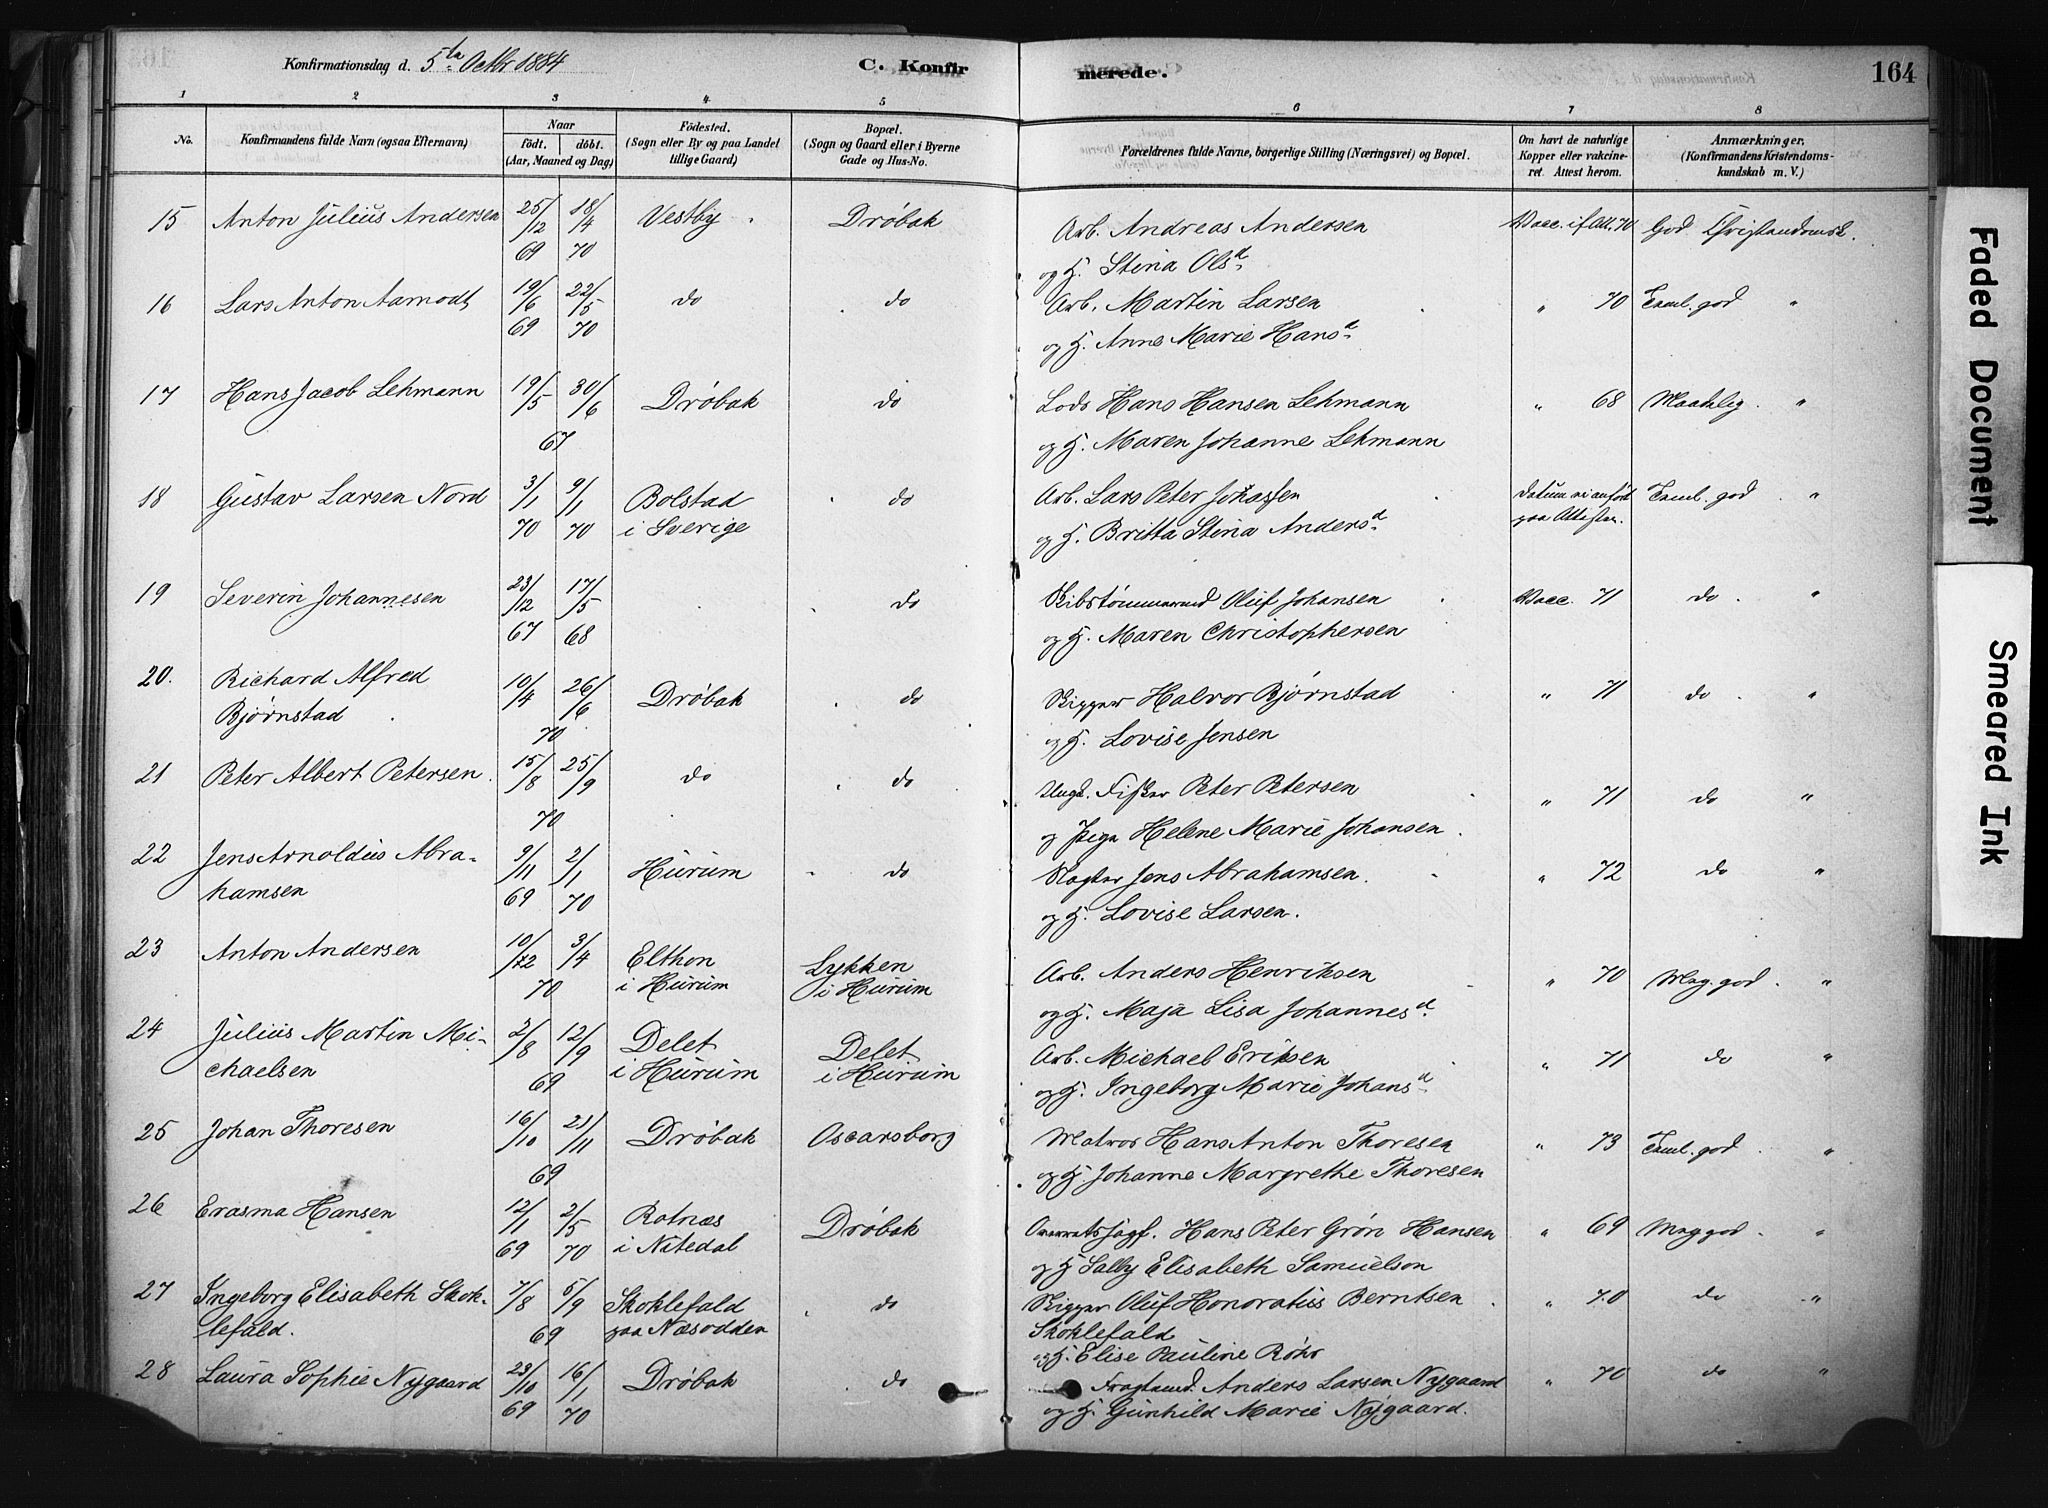 Konfirmationsdag d. 5te Octbr 1884
C. Konfirmerede.
164
1 2 3 4 5 6 7 8
No.
Konfirmandens fulde Navn (ogsaa Efternavn)
Naar
födt. döbt.
(Aar, Maaned og Dag)
Födested.
(Sogn eller By og paa Landet
tillige Gaard)
Bopæl.
(Sogn og Gaard eller i Byerne
Gade og Hus-No.
Forældrenes fulde Navne, borgerlige Stilling (Næringsvei) og Bopæl.
Om havt de naturlige
Kopper eller vakcine-
ret. Attest herom.
Anmærkninger.
(Konfirmandens Kristendoms-
kundskab m. V.)
15 Anton Julius Andersen 25/12 69 18/4 70 Vestby Drøbak Arb. Andreas Andersen Vacc. if Att. 70 God Christendomsk.
og H. Stina Olsd.
16 Lars Anton Aamodt 19/6 69 22/5 70 do do Arb. Martin Larsen " 70 Teml. god "
og H. Anne Marie Hansd.
17 Hans Jacob Lehmann 19/5 30/6 67 Drøbak do Lods Hans Hansen Lehmann " 68 Maadelig "
og H. Maren Johanne Lehmann
18 Gustav Larsen Nord 3/1 70 9/1 70 Bolstad do Arb. Lars Peter Johassen Datum ei anført Teml. god "
i Sverige og H. Britta Stina Andersd. paa Attesten.
19 Severin Johannesen 23/12 67 17/5 68 do Skibstømmermd Oluf Johansen Vacc. 71 do "
og H. Maren Christophersen
20. Richard Alfred 10/4 26/6 70 Drøbak do Skipper Halvor Bjørnstad " 71 do "
Bjørnstad og H. Lovise Jensen
21 Peter Albert Petersen 15/8 25/9 70 do do Ungk. Fisker Peter Petersen " 71 do "
og Pige Helene Marie Johansen
22 Jens Arnoldus Abra- 9/11 69 2/1 70 Hurum do Slagter Jens Abrahamsen " 72 do "
hamsen og H. Lovise Larsen.
23 Anton Andersen 10/12 3/4 70 Elthon Lykken Arb. Anders Henriksen " 70 Meg. god "
i Hurum i Hurum og H. Maja Lisa Johannesd.
24 Julius Martin Mi- 2/8 12/9 69 Delet Delet Arb. Michael Eriksen " 71 do "
chaelsen i Hurum i Hurum og H. Ingeborg Marie Johansd.
25 Johan Thoresen 16/10 21/11 69 Drøbak Oscarsborg Matros Hans Anton Thoresen " 73 Teml. god "
og H. Johanne Margrethe Thoresen
26 Erasma Hansen 12/1 69 2/5 70 Rotnæs Drøbak Hans Peter Grøn Hansen " 69 Meg god "
i Nitedal og H Salby Elisabeth Samuelson
27 Ingeborg Elisabeth Skok- 7/8 5/9 69 Skoklefald do Skipper Oluf Honoratius Berntsen " 70 do "
lefald. paa Næsodden Skoklefald
og H. Elise Pauline Röhr
28 Laura Sophie Nygaard 23/10 69 16/1 70 Drøbak do Fragtemd. Anders Larsen Nygaard " 70 do "
og H. Gunhild Marie Nygaard.
Faded Document
Smeared Ink